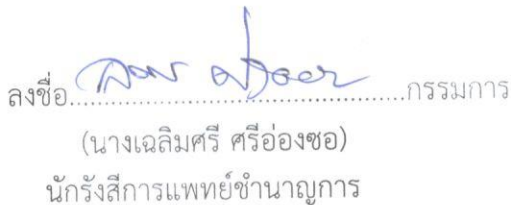 ลงชื่อ........................................กรรมการ
(นางเฉลิมศรี ศรีอ่องซอ)
นักรังสีการแพทย์ชำนาญการ